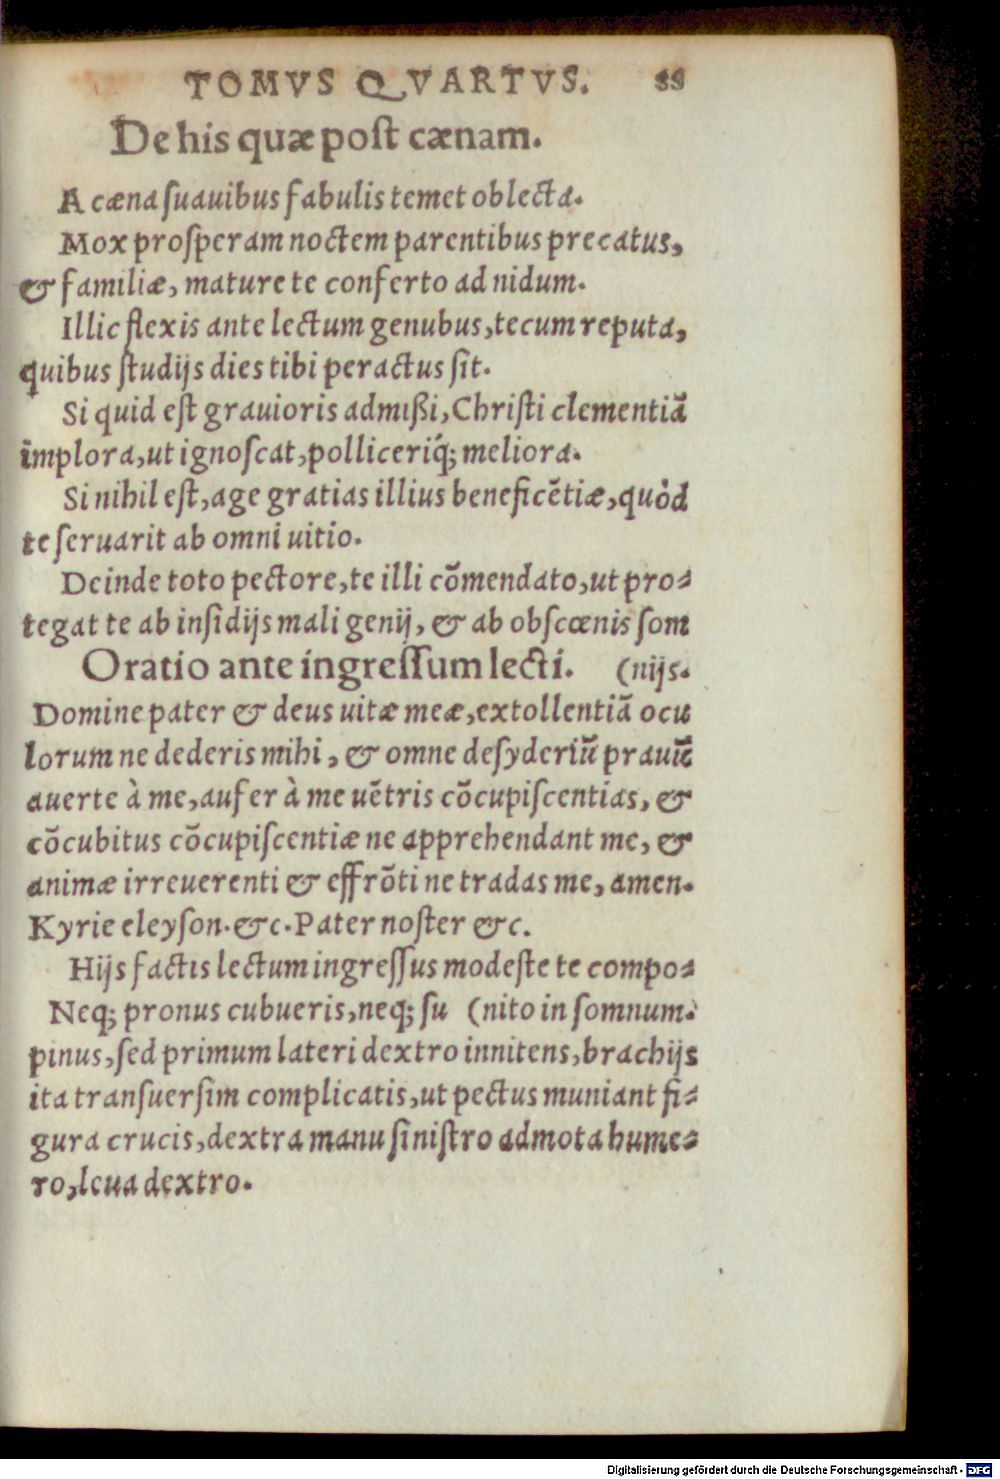 TOMVS QVARTVS. 88
De his quæ post cænam.
A cæna suauibus fabulis temet oblecta.
Mox prosperam noctem parentibus precatus,
& familiæ, mature te conferto ad nidum.
Illic flexis ante lectum genubus, tecum reputa,
quibus studijs dies tibi peractus sit.
Si quid est grauioris admißi, Christi clementiā
implora, ut ignoscat, polliceriq́; meliora.
Si nihil est, age gratias illius beneficētiæ, quòd
te seruarit ab omni uitio.
Deinde toto pectore, te illi cōmendato, ut pro-
tegat te ab insidijs mali genij, & ab obscœnis som
Oratio ante ingressum lecti. (nijs.
Domine pater & deus uitæ meæ, extollentiā ocu
lorum ne dederis mihi, & omne desyderiū prauū
auerte à me, aufer à me uētris cōcupiscentias, &
cōcubitus cōcupiscentiæ ne apprehendant me, &
animæ irreuerenti & effrōti ne tradas me, amen.
Kyrie eleyson. &c. Pater noster &c.
Hijs factis lectum ingressus modeste te compo-
Neq; pronus cubueris, neq; su (nito in somnum.
pinus, sed primum lateri dextro innitens, brachijs
ita transuersim complicatis, ut pectus muniant fi-
gura crucis, dextra manu sinistro admota hume-
ro, leua dextro.
Digitalisierung gefördert durch die Deutsche Forschungsgemeinschaft - DFG